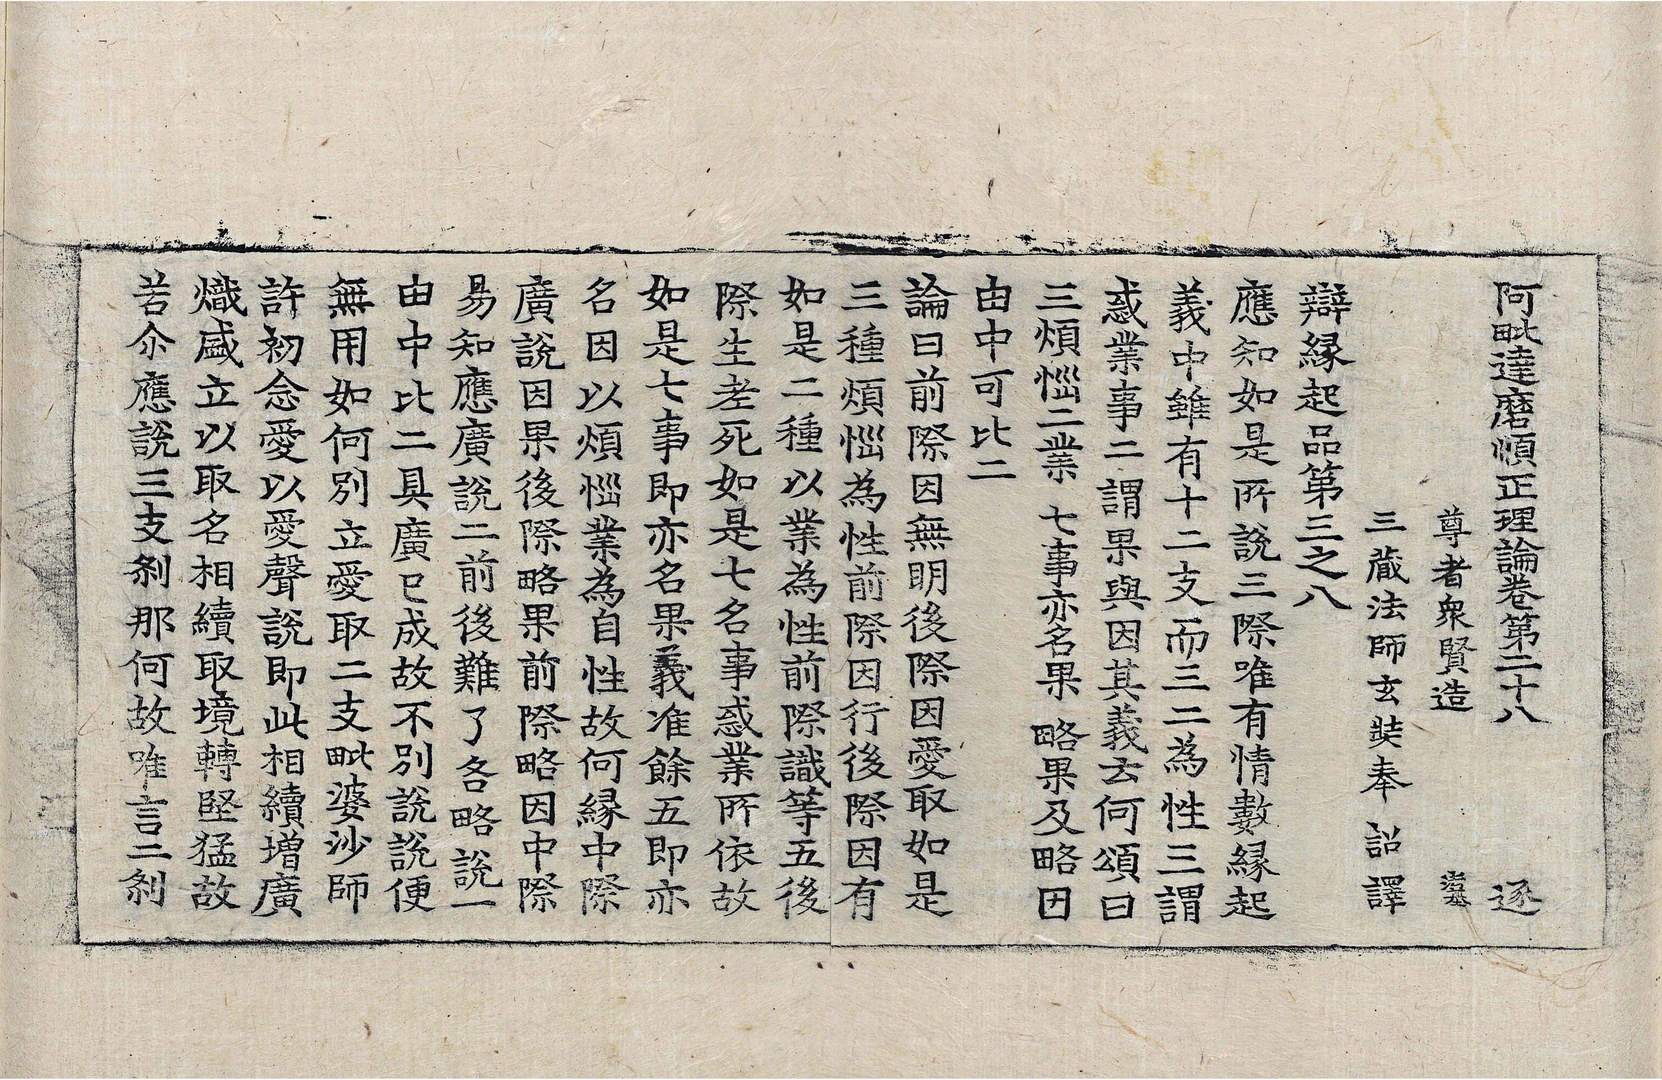 阿毗達磨順正理論卷第二十八 逐
尊者衆賢造
三藏法師玄奘奉 詔譯
辯緣起品第三之八
應知如是所說三際唯有情數緣起
義中雖有十二支而三二為性三謂
惑業事二謂果與因其義云何頌曰
三煩惱二業 七事亦名果 略果及略因
由中可比二
論曰前際因無明後際因愛取如是
三種煩惱為性前際因行後際因有
如是二種以業為性前際識等五後
際生老死如是七名事惑業所依故
如是七事即亦名果義准餘五即亦
名因以煩惱業為自性故何緣中際
廣說因果後際略果前際略因中際
易知應廣說二前後難了各略說一
由中比二具廣已成故不別說說便
無用如何別立愛取二支毗婆沙師
許初念愛以愛聲說即此相續增廣
熾盛立以取名相續取境轉堅猛故
若尒應說三支剎那何故唯言二剎